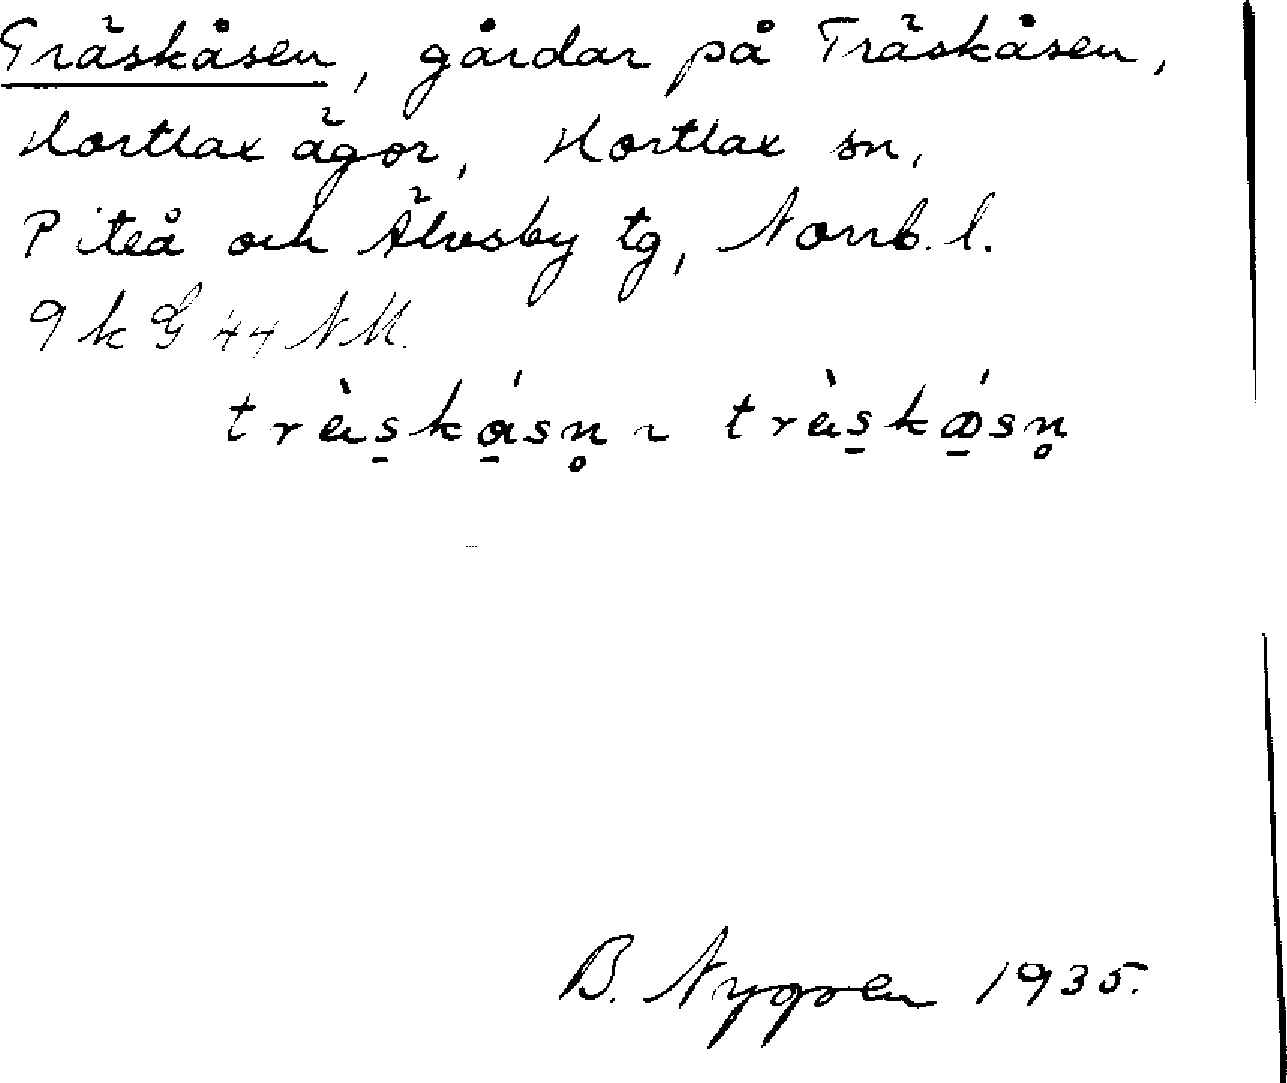 Träskåsen, gårdar på Träskåsen,
Hortlax ägor, Hortlax sn,
Piteå och Älvsby tg, Norrb. l.
9 k G 44 NM.
trä̀s̠kɑ̠́sn̥ ~ trä̀s̠kꝏ̠́sn̥
B. Nygren 1935.